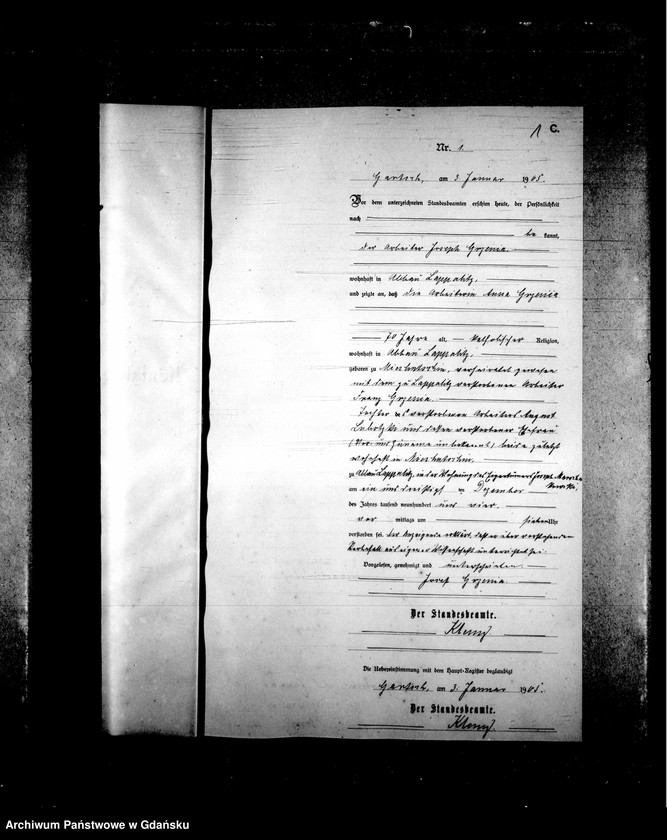 1 C.
Nr. 1
Gartsch, am 3. Januar 1905.
Vor dem unterzeichneten Standesbeamten erschien heute, der Persönlichkeit
nach
be kannt,
der Arbeiter Joseph Grzenia
wohnhaft in Abbau Lappalitz,
und zeigte an, daß die Arbeiterin Anna Grzenia
70 Jahre alt, katholischer Religion,
wohnhaft in Abbau Lappalitz,
geboren zu verheiratet gewesen
mit dem zu Lappalitz verstorbenen Arbeiter
Franz Grzenia
Tochter des verstorbenen Arbeiters August
und dessen verstorbener Ehefrau
(Vor und Zuname unbekannt) beide zuletzt
wohnhaft in
zu Abbau Lappalitz, in der Wohnung des Eigentümers Joseph
am ein und dreißigsten Dezember
des Jahres tausend neunhundert und vier
vor mittags um sieben Uhr
verstorben sei. Der Anzeigende erklärt, daß er über vorstehenden
Sterbefall aus eigener Wissenschaft unterrichtet sei.
Vorgelesen, genehmigt und unterschrieben.
Josef Grzenia
Der Standesbeamte.
Die Uebereinstimmung mit dem Haupt-Register beglaubigt
Gartsch, am 3. Januar 1905.
Der Standesbeamte.
Archiwum Państwowe w Gdańsku